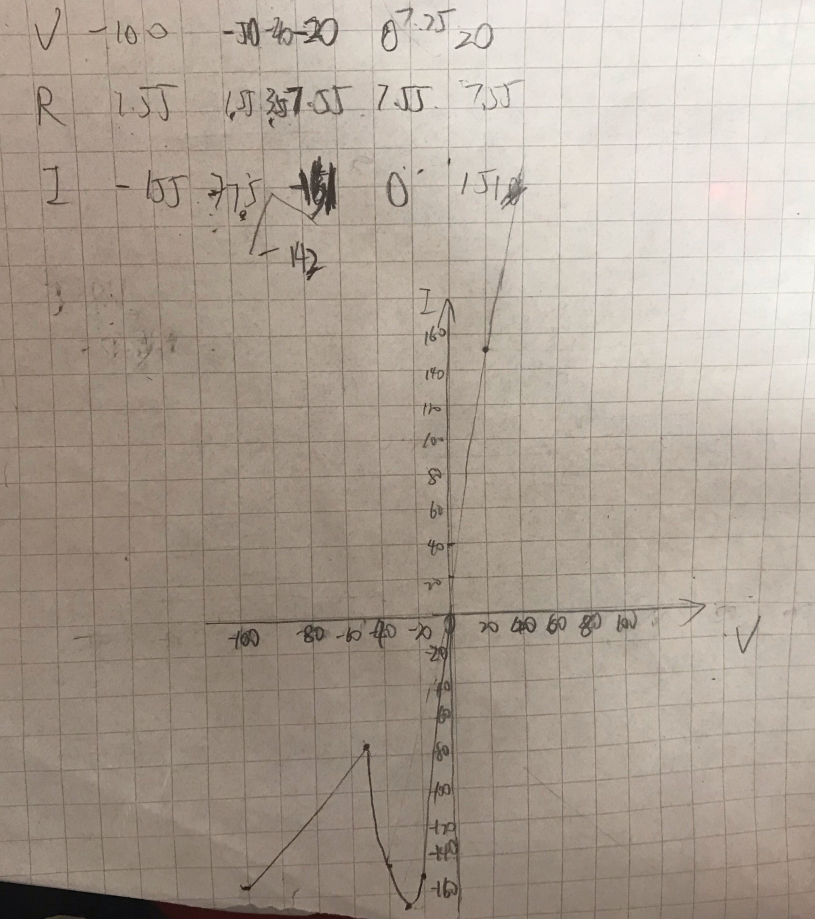 V -100 -50 -40 -20 0 7.25 20
R 1.55 1.55 3.55 7.55 7.55 7.55
I -155 -77.5 0 151
-142
I
160
140
120
100
80
60
40
20
-100 -80 -60 -40 -20 0 20 40 60 80 100
V
-20
-40
60
-80
-100
-120
-140
-160